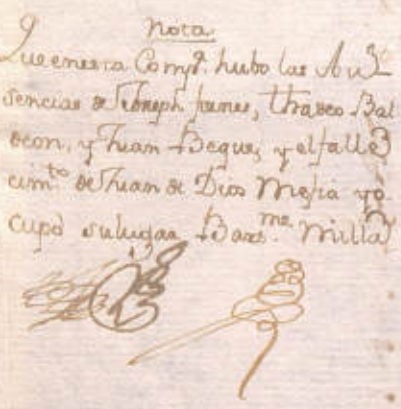 Nota
Que en esta Comp.ª hubo las Au
sencias de Joseph funes, thadeo Bal
deon, y Juan Beque, y el falle
cim.to de Juan de Dios Mesia y o
cupó su lugar Bar.me Milla